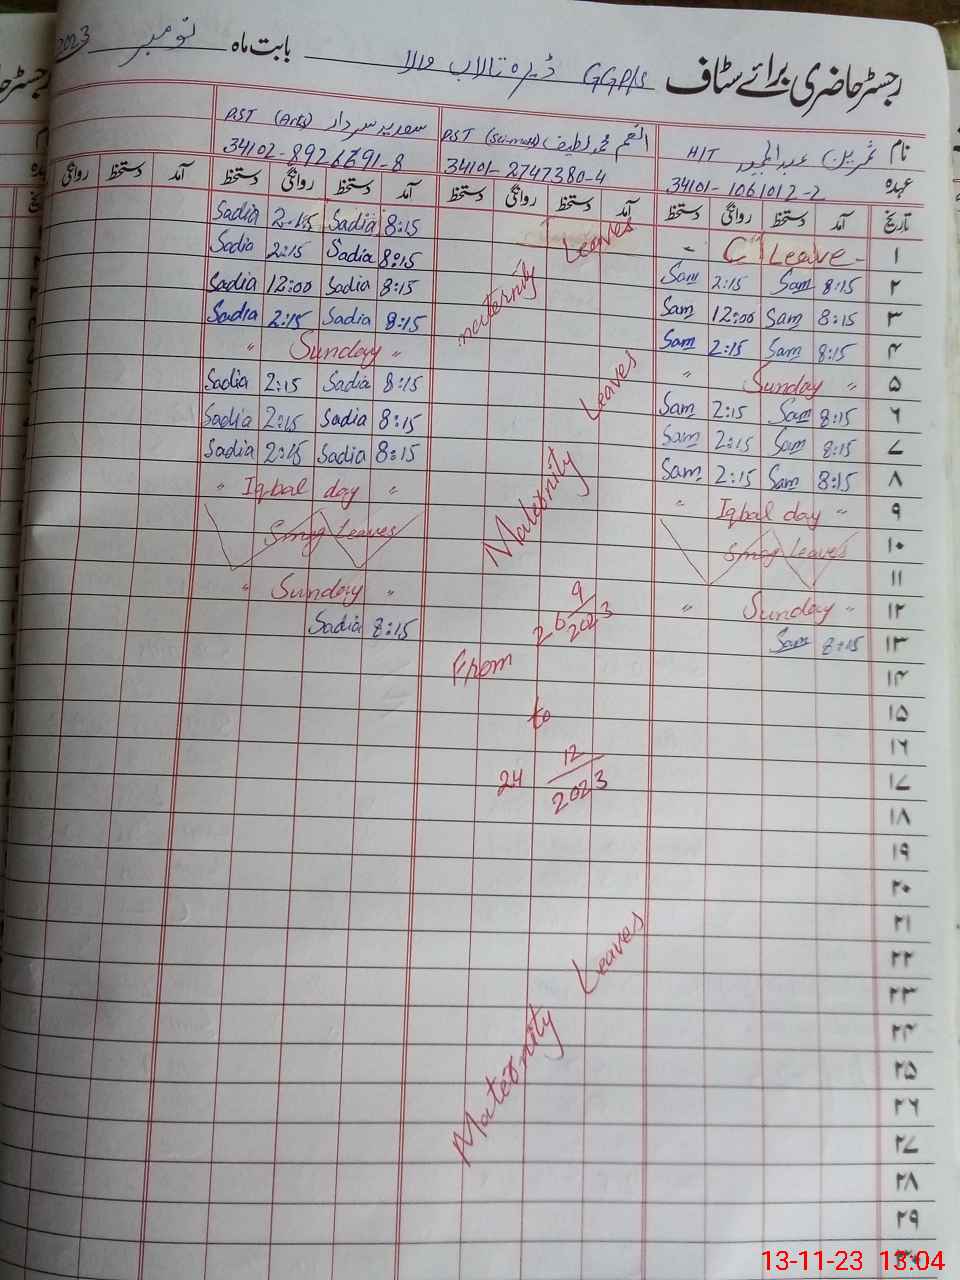 رجسٹر حاضری برائے سٹاف GGP/s ڈیرہ تالاب والا بابت ماہ نومبر 2023
نام ثمرین عبدالمجید HIT انعم محمد لطیف PST (Sci-math) سعدیہ سردار PST (Arts)
عہدہ 34101-1061012-2 34101-2747380-4 34102-8926791-8
تاریخ آمد دستخط روانگی دستخط آمد دستخط روانگی دستخط آمد دستخط روانگی دستخط آمد دستخط روانگی
Sadia 2:15 Sadia 8:15 maternity Leaves " C Leave - ۱
Sadia 2:15 Sadia 8:15 Sam 2:15 Sam 8:15 ۲
Sadia 12:00 Sadia 8:15 Sam 12:00 Sam 8:15 ۳
Sadia 2:15 Sadia 8:15 Sam 2:15 Sam 8:15 ۴
" Sunday " " Sunday " ۵
Sadia 2:15 Sadia 8:15 Maternity Leaves Sam 2:15 Sam 8:15 ۶
Sadia 2:15 Sadia 8:15 Sam 2:15 Sam 8:15 ۷
Sadia 2:15 Sadia 8:15 Sam 2:15 Sam 8:15 ۸
" Iqbal day " " Iqbal day " ۹
Smog Leaves Smog Leaves ۱۰
۱۱
" Sunday " 26 9/2023 " Sunday " ۱۲
Sadia 8:15 Sam 8:15 ۱۳
From ۱۴
to ۱۵
۱۶
24 12/2023 ۱۷
۱۸
۱۹
۲۰
۲۱
Maternity Leaves ۲۲
۲۳
۲۴
۲۵
۲۶
۲۷
۲۸
۲۹
۳۰
13-11-23 13:04